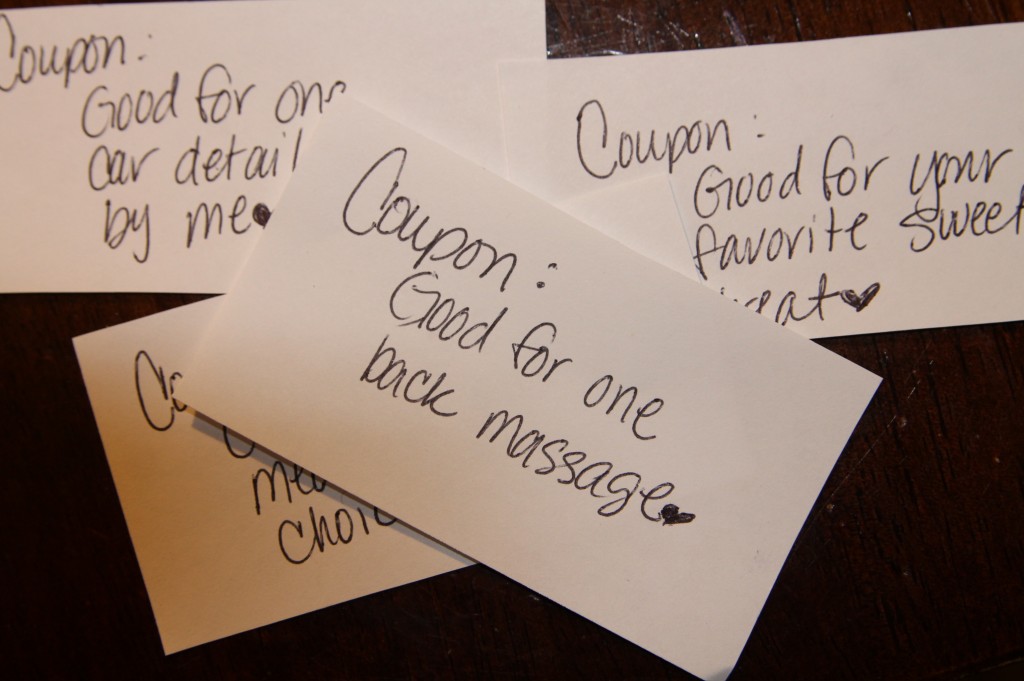 Coupon:
Good for one
car detail
by me
Coupon:
Good for your
favorite sweet
treat
Coupon:
Good for one
back massage